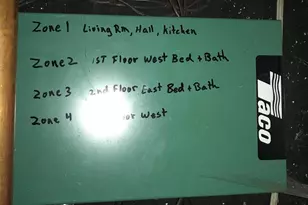 Zone 1 Living Rm, Hall, Kitchen
Zone 2 1st Floor West Bed + Bath
Zone 3 2nd Floor East Bed + Bath
Zone 4 West
Taco